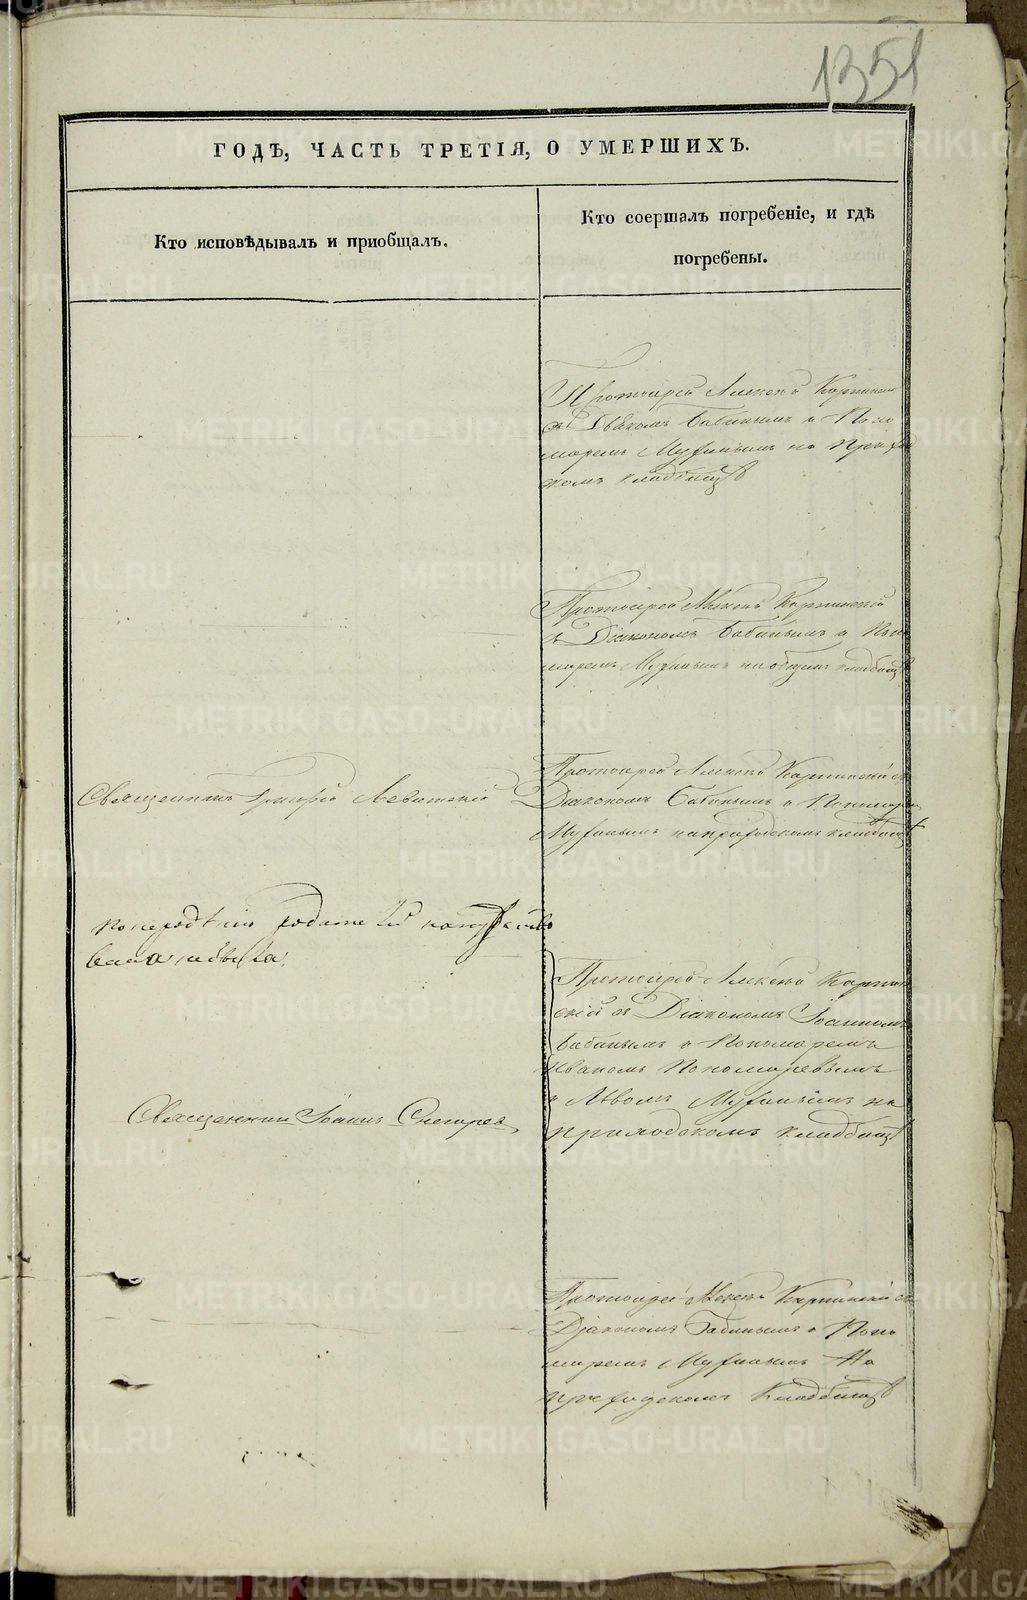 1351
ГОДѢ, ЧАСТЬ ТРЕТІЯ, О УМЕРШИХЪ.
Кто исповѣдывалъ и приобщалъ.
Кто соершалъ погребеніе, и гдѣ
погребены.
Протоіерей Алексѣй
съ Діакономъ Бабинымъ и Поно
маремъ на Приход
комъ кладбищѣ
Протоіерей Алексѣй Карпинскій
съ Діакономъ Бабинымъ и Поно
маремъ на общемъ кладбищѣ
Священникъ Григорій Левитскій
Протоіерей Алексѣй Карпинскій съ
Діакономъ Бабинымъ и Пономаремъ
на приходскомъ кладбищѣ
родителей
была
Протоіерей Алексѣй Карпин
скій съ Діакономъ Іоанномъ
Бабинымъ и Пономаремъ
Иваномъ Пономаревымъ
и Львомъ на
приходскомъ кладбищѣ
Священникъ Іоаннъ Снегирев
Протоіерей Алексѣй Карпинскій съ
Діакономъ Бабинымъ и Поно
маремъ На
приходскомъ Кладбищѣ
METRIKI.GASO-URAL.RU